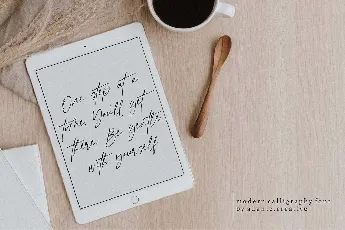 One step at a
time. You'll get
there. Be gentle
with yourself
modern calligraphy font
by